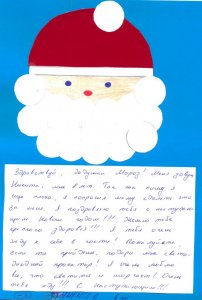 Здравствуй, Дедушка Мороз! Меня зовут
Никита, мне 8 лет. Так как пишу я
ещё плохо, я попросил маму сделать это
за меня. Я поздравляю тебя с наступаю-
щим Новым годом!!! Желаю тебе
крепкого здоровья!!! Я тебя очень
жду к себе в гости! Пожалуйста
если ты придёшь, подари мне свето-
проектор! Я очень люблю
всё, что светится и моргает! Очень
тебя жду!!! С Наступающим!!!